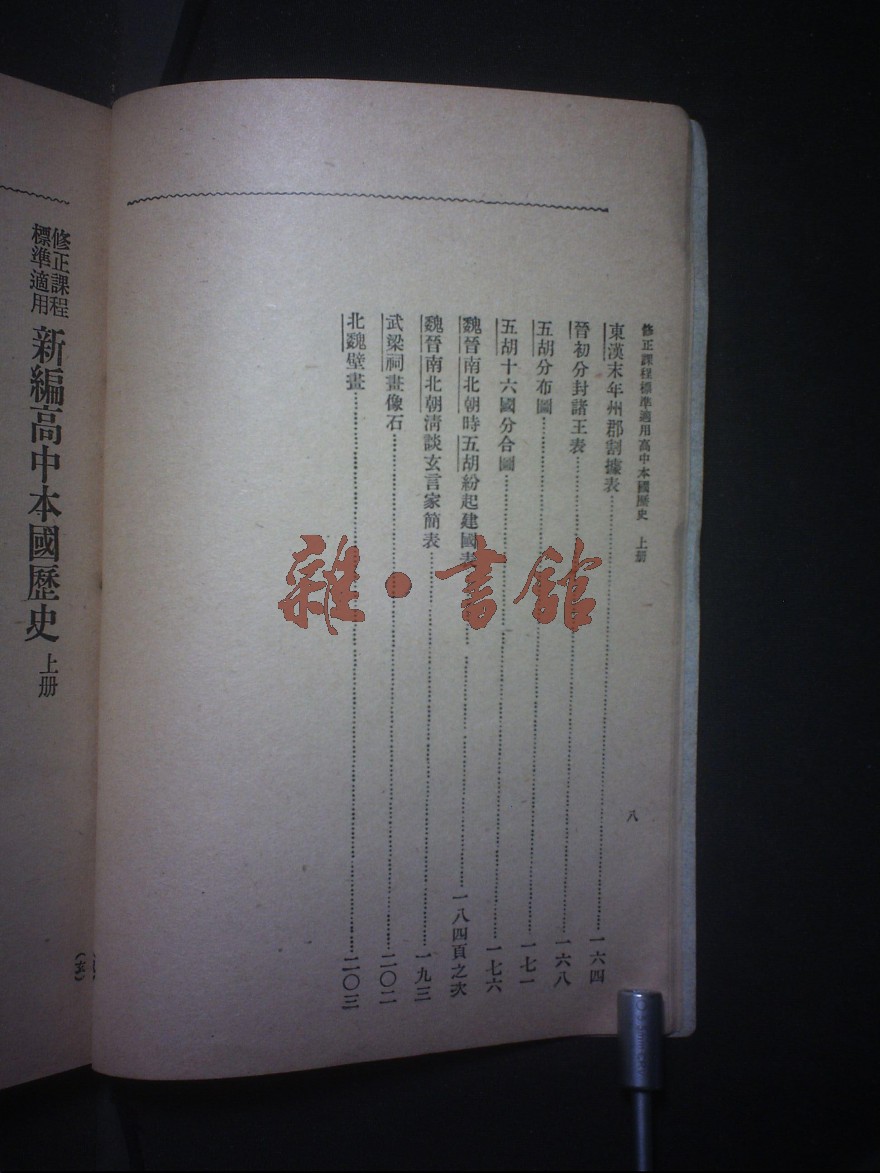 修正課程標準適用高中本國歷史 上册
八
東漢末年州郡割據表 一六四
晉初分封諸王表 一六八
五胡分布圖 一七一
五胡十六國分合圖 一七六
魏晉南北朝時五胡紛起建國表 一八四頁之次
魏晉南北朝清談玄言家簡表 一九三
武梁祠畫像石 二〇二
北魏壁畫 二〇三
修正課程
標準適用
新編高中本國歷史 上册
雜·書館